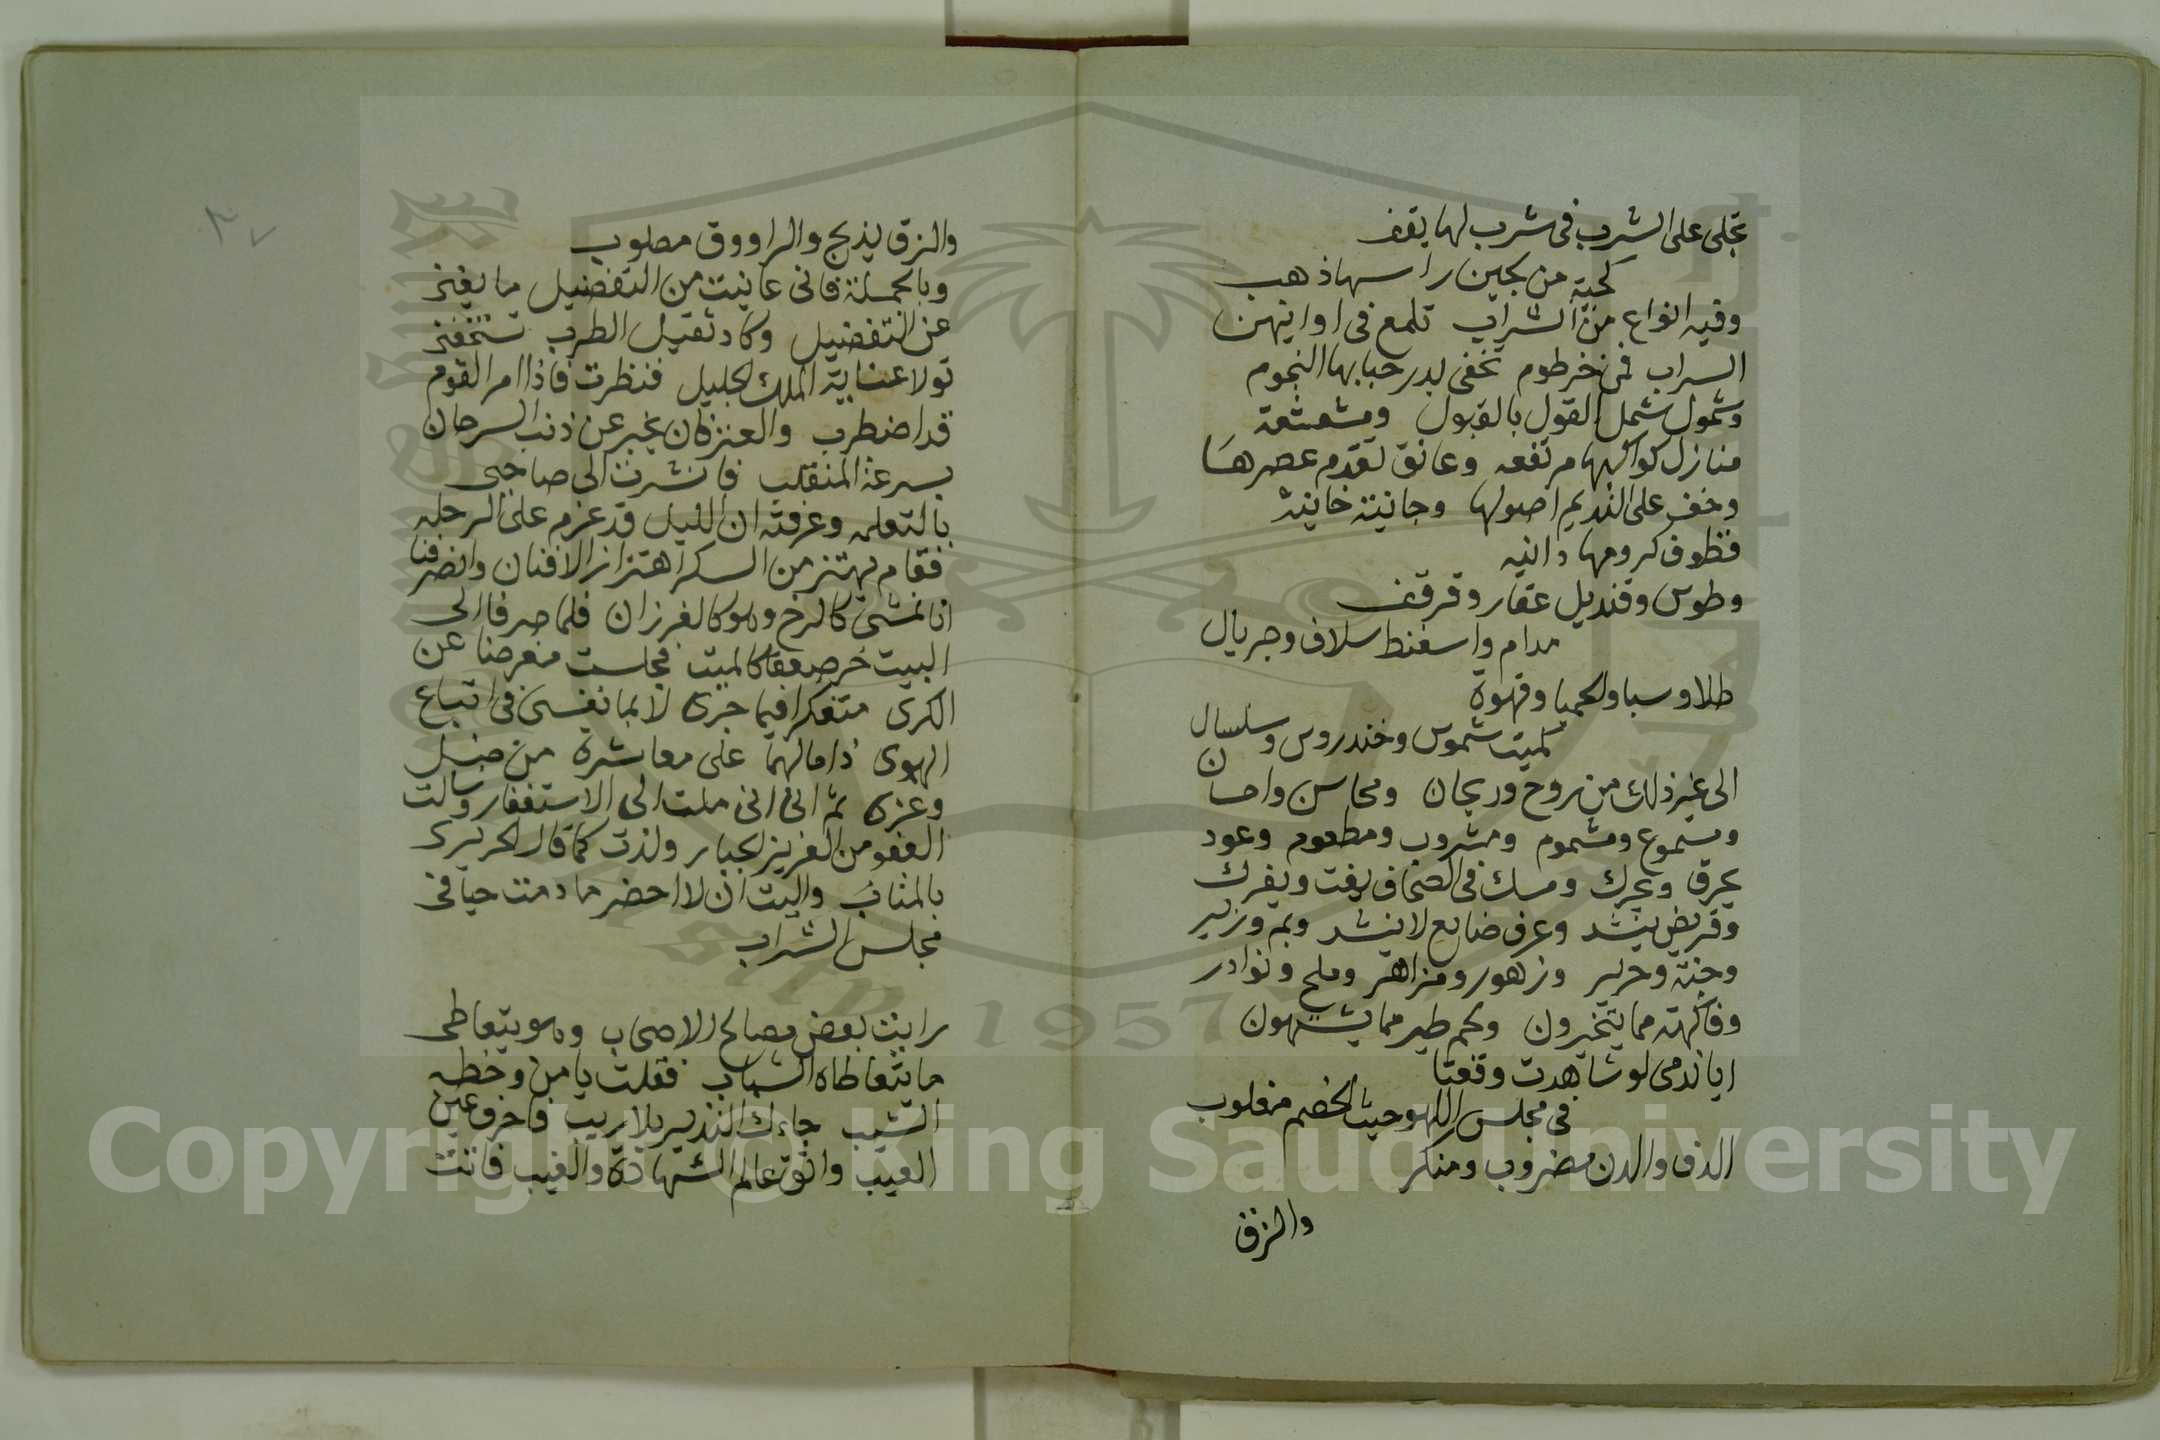 تجلى على الشرب في شرب لها يقف
كحية من لجين راسها ذهب
وفيه انواع من الشراب تلمع في اوانيهن
السراب فمن خرطوم تخفى لدر حبابها النجوم
وشمول شمل القول بالقبول ومشعشعة
منازل كواكبها مرتفعه وعاتق تقدم عصرها
وخف على النديم اصولها وجانية خانية
قطوف كرومها دانيه
وطوس وقنديل عقار وقرقف
مدام واسفنط سلاف وجريال
طلا وسبا والحميا وقهوة
كميت شموس وخندروس وسلسال
الى غير ذلك من روح وريحان ومحاسن واحسان
ومسموع ومشموم ومشروب ومطعوم وعود
يحرق ويحرك ومسك في الصحاف يفت ويفرك
وقريض ينشد وعرف ضايع لا ينشد وبم وزير
وجنة وحرير وزهور ومزاهر وملح ونوادر
وفاكهة مما يتخيرون ولحم طير مما يشتهون
ايا ندمى لو شاهدت وقعتا
في مجلس اللهو حيث الخصم مغلوب
الدف والدن مضروب ومنكر
والزق
والزق يذبح والراووق مصلوب
وبالجملة فانى عاينت من التفضيل ما يغنى
عن التفضيل وكاد ثقيل الطرب تستخفنى
لولا عناية الملك الجليل فنظرت فاذا امر القوم
قد اضطرب والعنز كان يخبر عن ذنب السرحان
بسرعة المنقلب فاشرت الى صاحبى
بالتعلم وعرفته ان الليل قد عزم على الرحله
فقام يهتز من السكر اهتزاز الافنان وانصرفنا
انا نمشى كالرخ وهو كالفرزان فلما صرفا الى
البيت خر صعقا كالميت فجلست معرضا عن
الكرى متفكرا فيما جرى لايما نفسى في اتباع
الهوى ذاما لها على معاشرة من ضل
وغوى ثم انى ملت الى الاستغفار وسالت
العفو من العزيز الجبار ولذت كما قال الحريرى
بالمتاب واليت ان لا احضر ما دمت حيا في
مجلس الشراب
رايت بعض مصالح الاصحاب وهو يتعاطى
ما يتعاطاه الشباب فقلت يا من وخطه
الشيب جاءك النذير بلا ريب فاخرق عين
العيب واتق عالم الشهادة والغيب فانت
٣٧
Copyright © King Saud University
1957